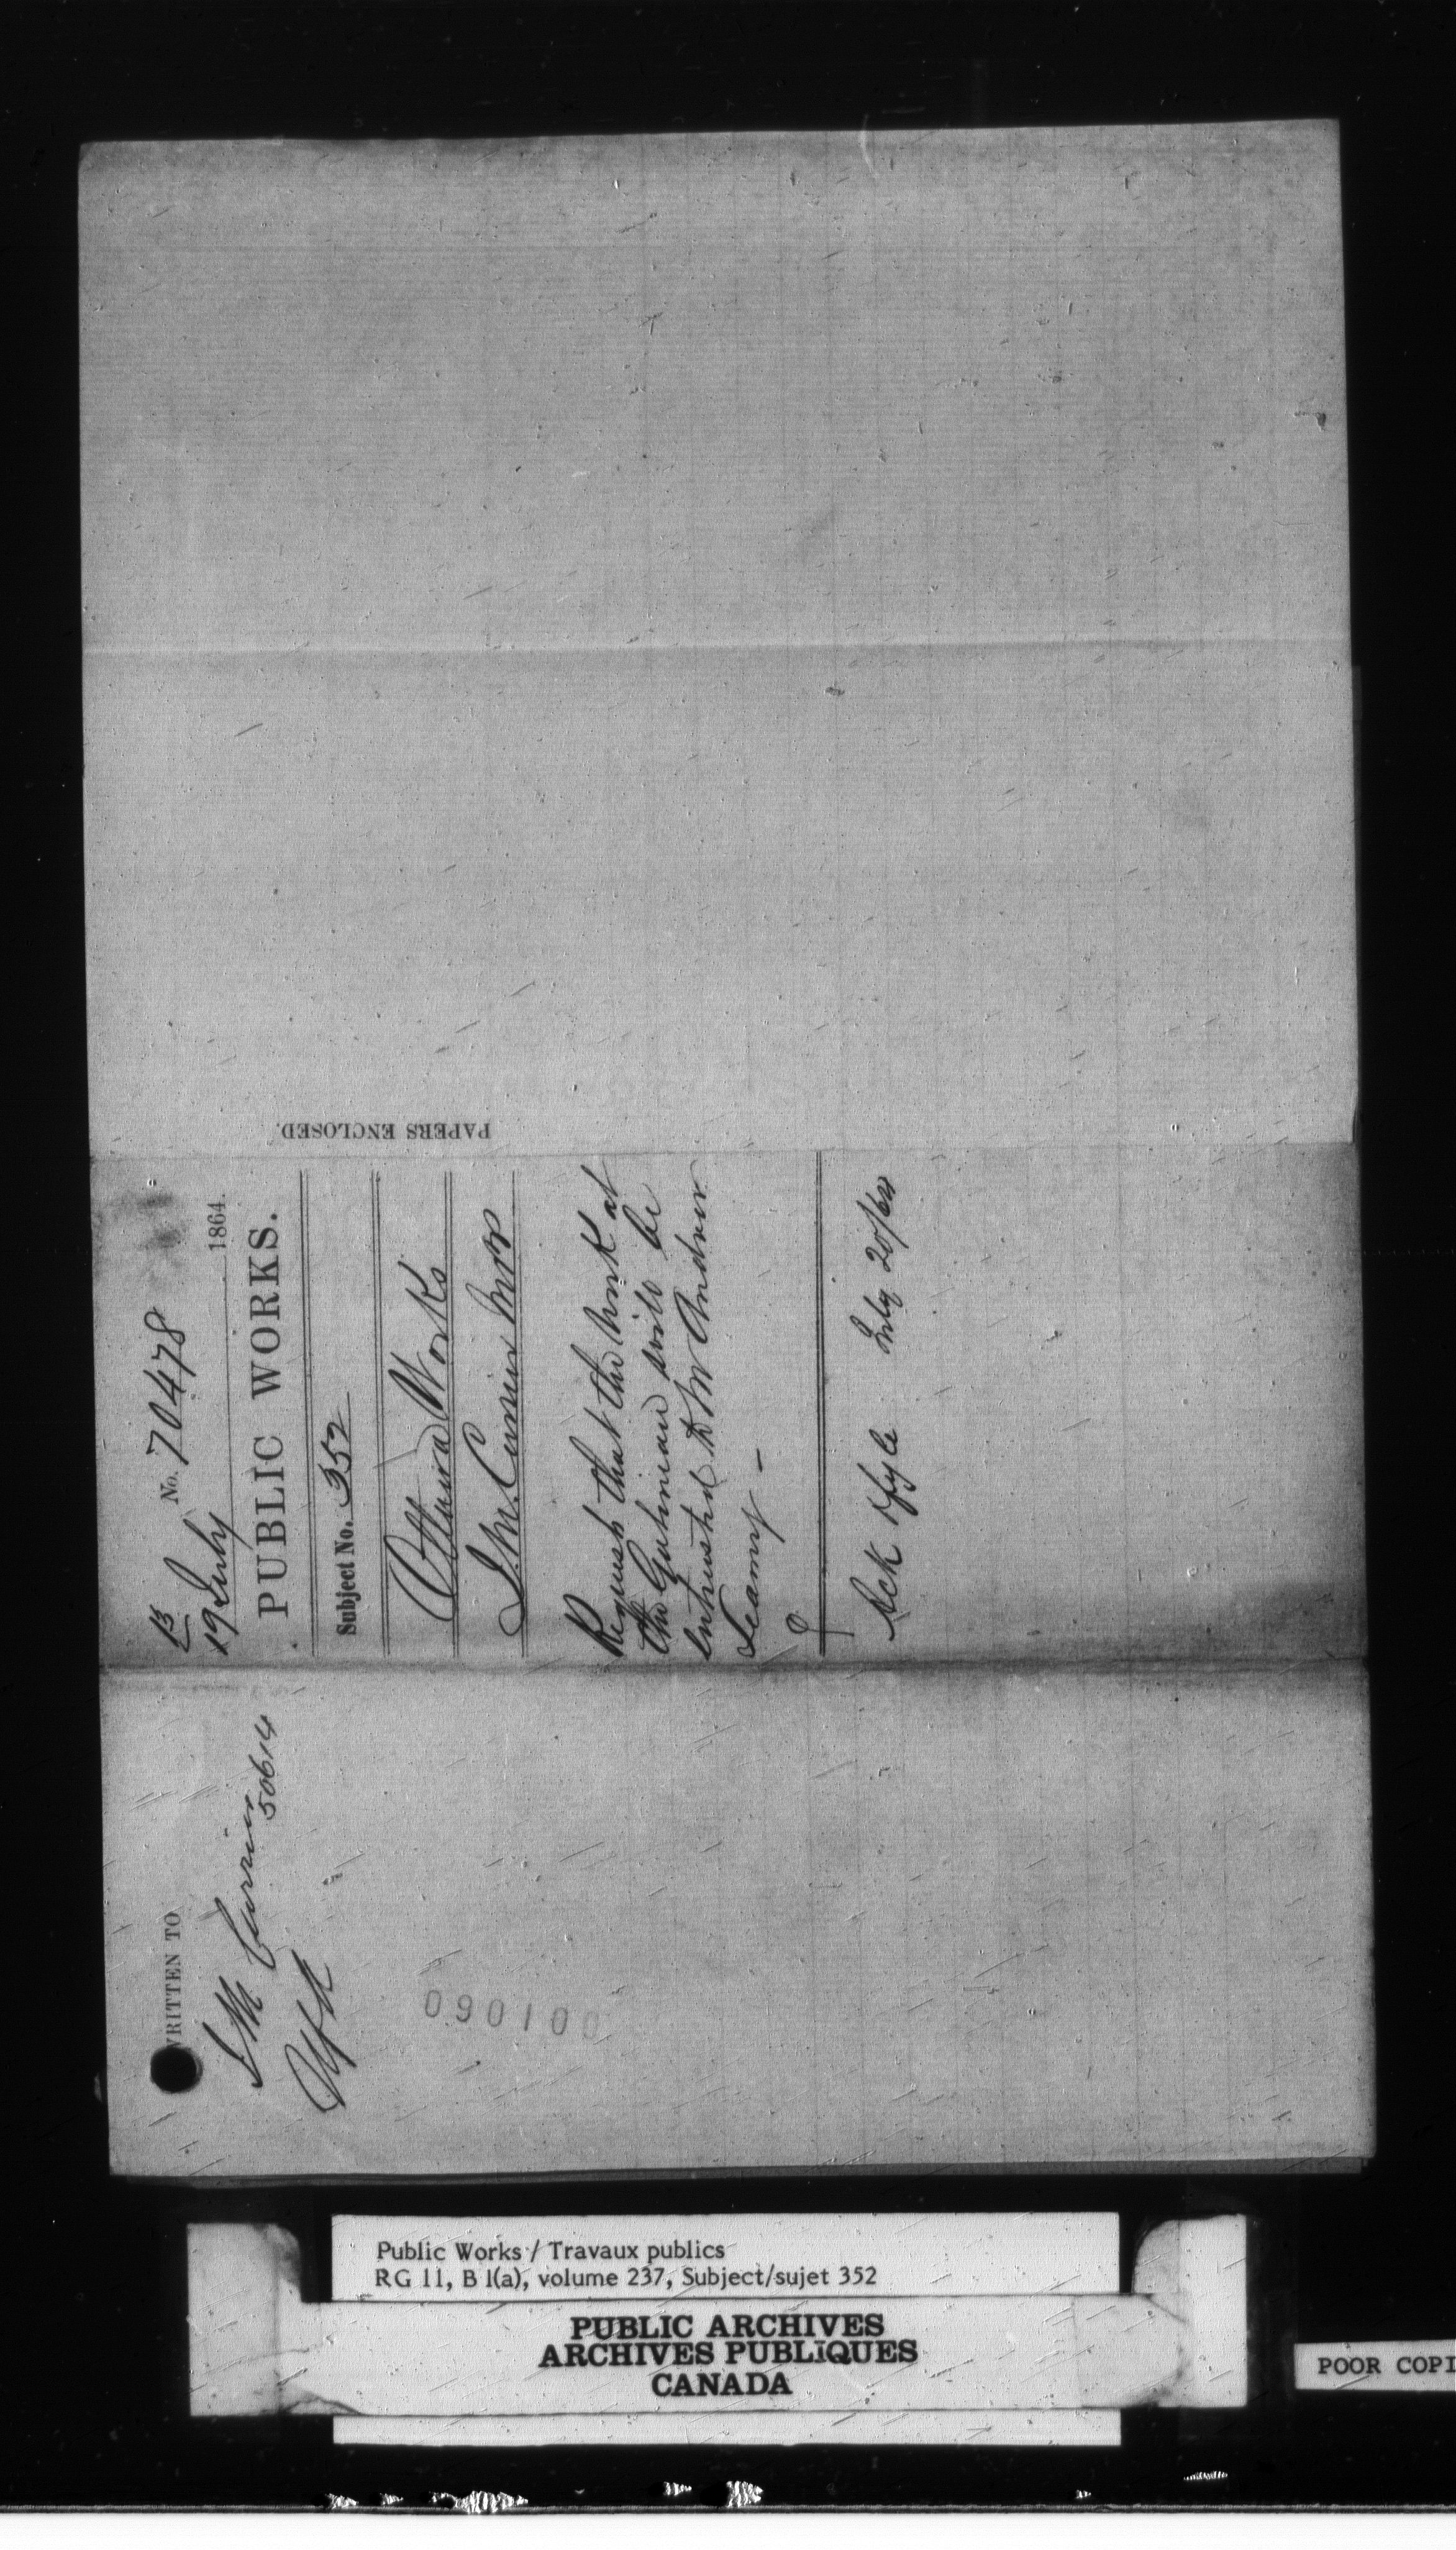 13
No. 70478
19 July 1864.
PUBLIC WORKS.
Subject No. 352
Ottawa Works
J. M. Currier MPP
Request that the work at
the Gatineau will be
intrusted to Mr Andrew
Leamy —
Ack July 20/64
PAPERS ENCLOSED.
WRITTEN TO
J M Currier
50614
090100
Public Works / Travaux publics
RG 11, B 1(a), volume 237, Subject/sujet 352
PUBLIC ARCHIVES
ARCHIVES PUBLIQUES
CANADA
POOR COPI